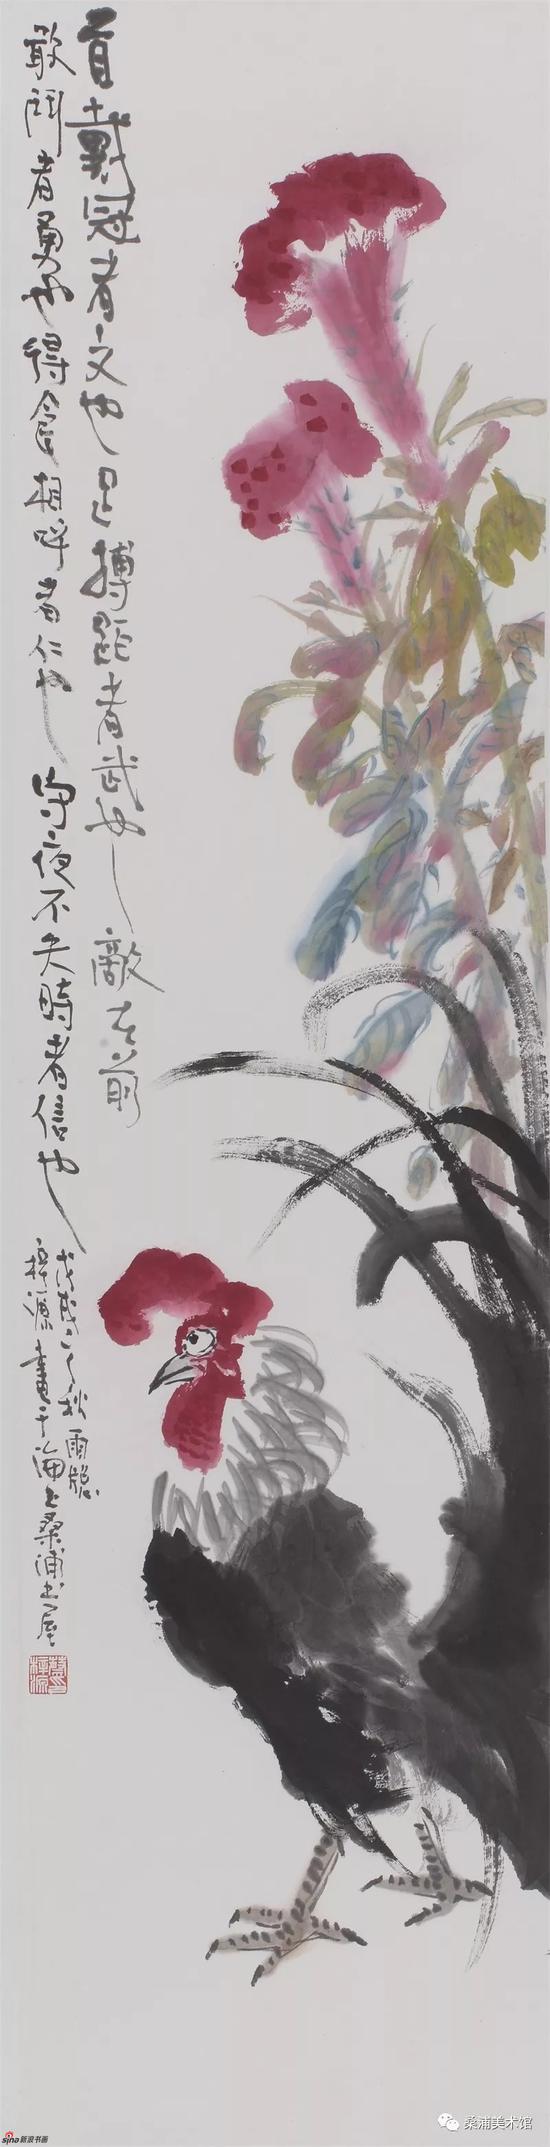 首戴冠者文也足搏距者武也敵在前
敢鬥者勇也得食相呼者仁也守夜不失時者信也
戊戌之秋雨牕
梓源畫于海上桑浦书屋
sina新浪书画
桑浦美术馆